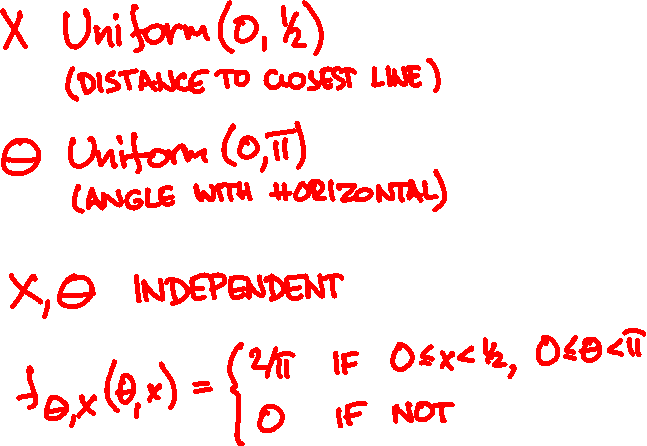 X Uniform(0, ½)
(DISTANCE TO CLOSEST LINE)
Θ Uniform(0,π)
(ANGLE WITH HORIZONTAL)
X,Θ INDEPENDENT
f_{Θ,X}(θ,x) = { 2/π IF 0≤x<½, 0≤θ<π
0 IF NOT